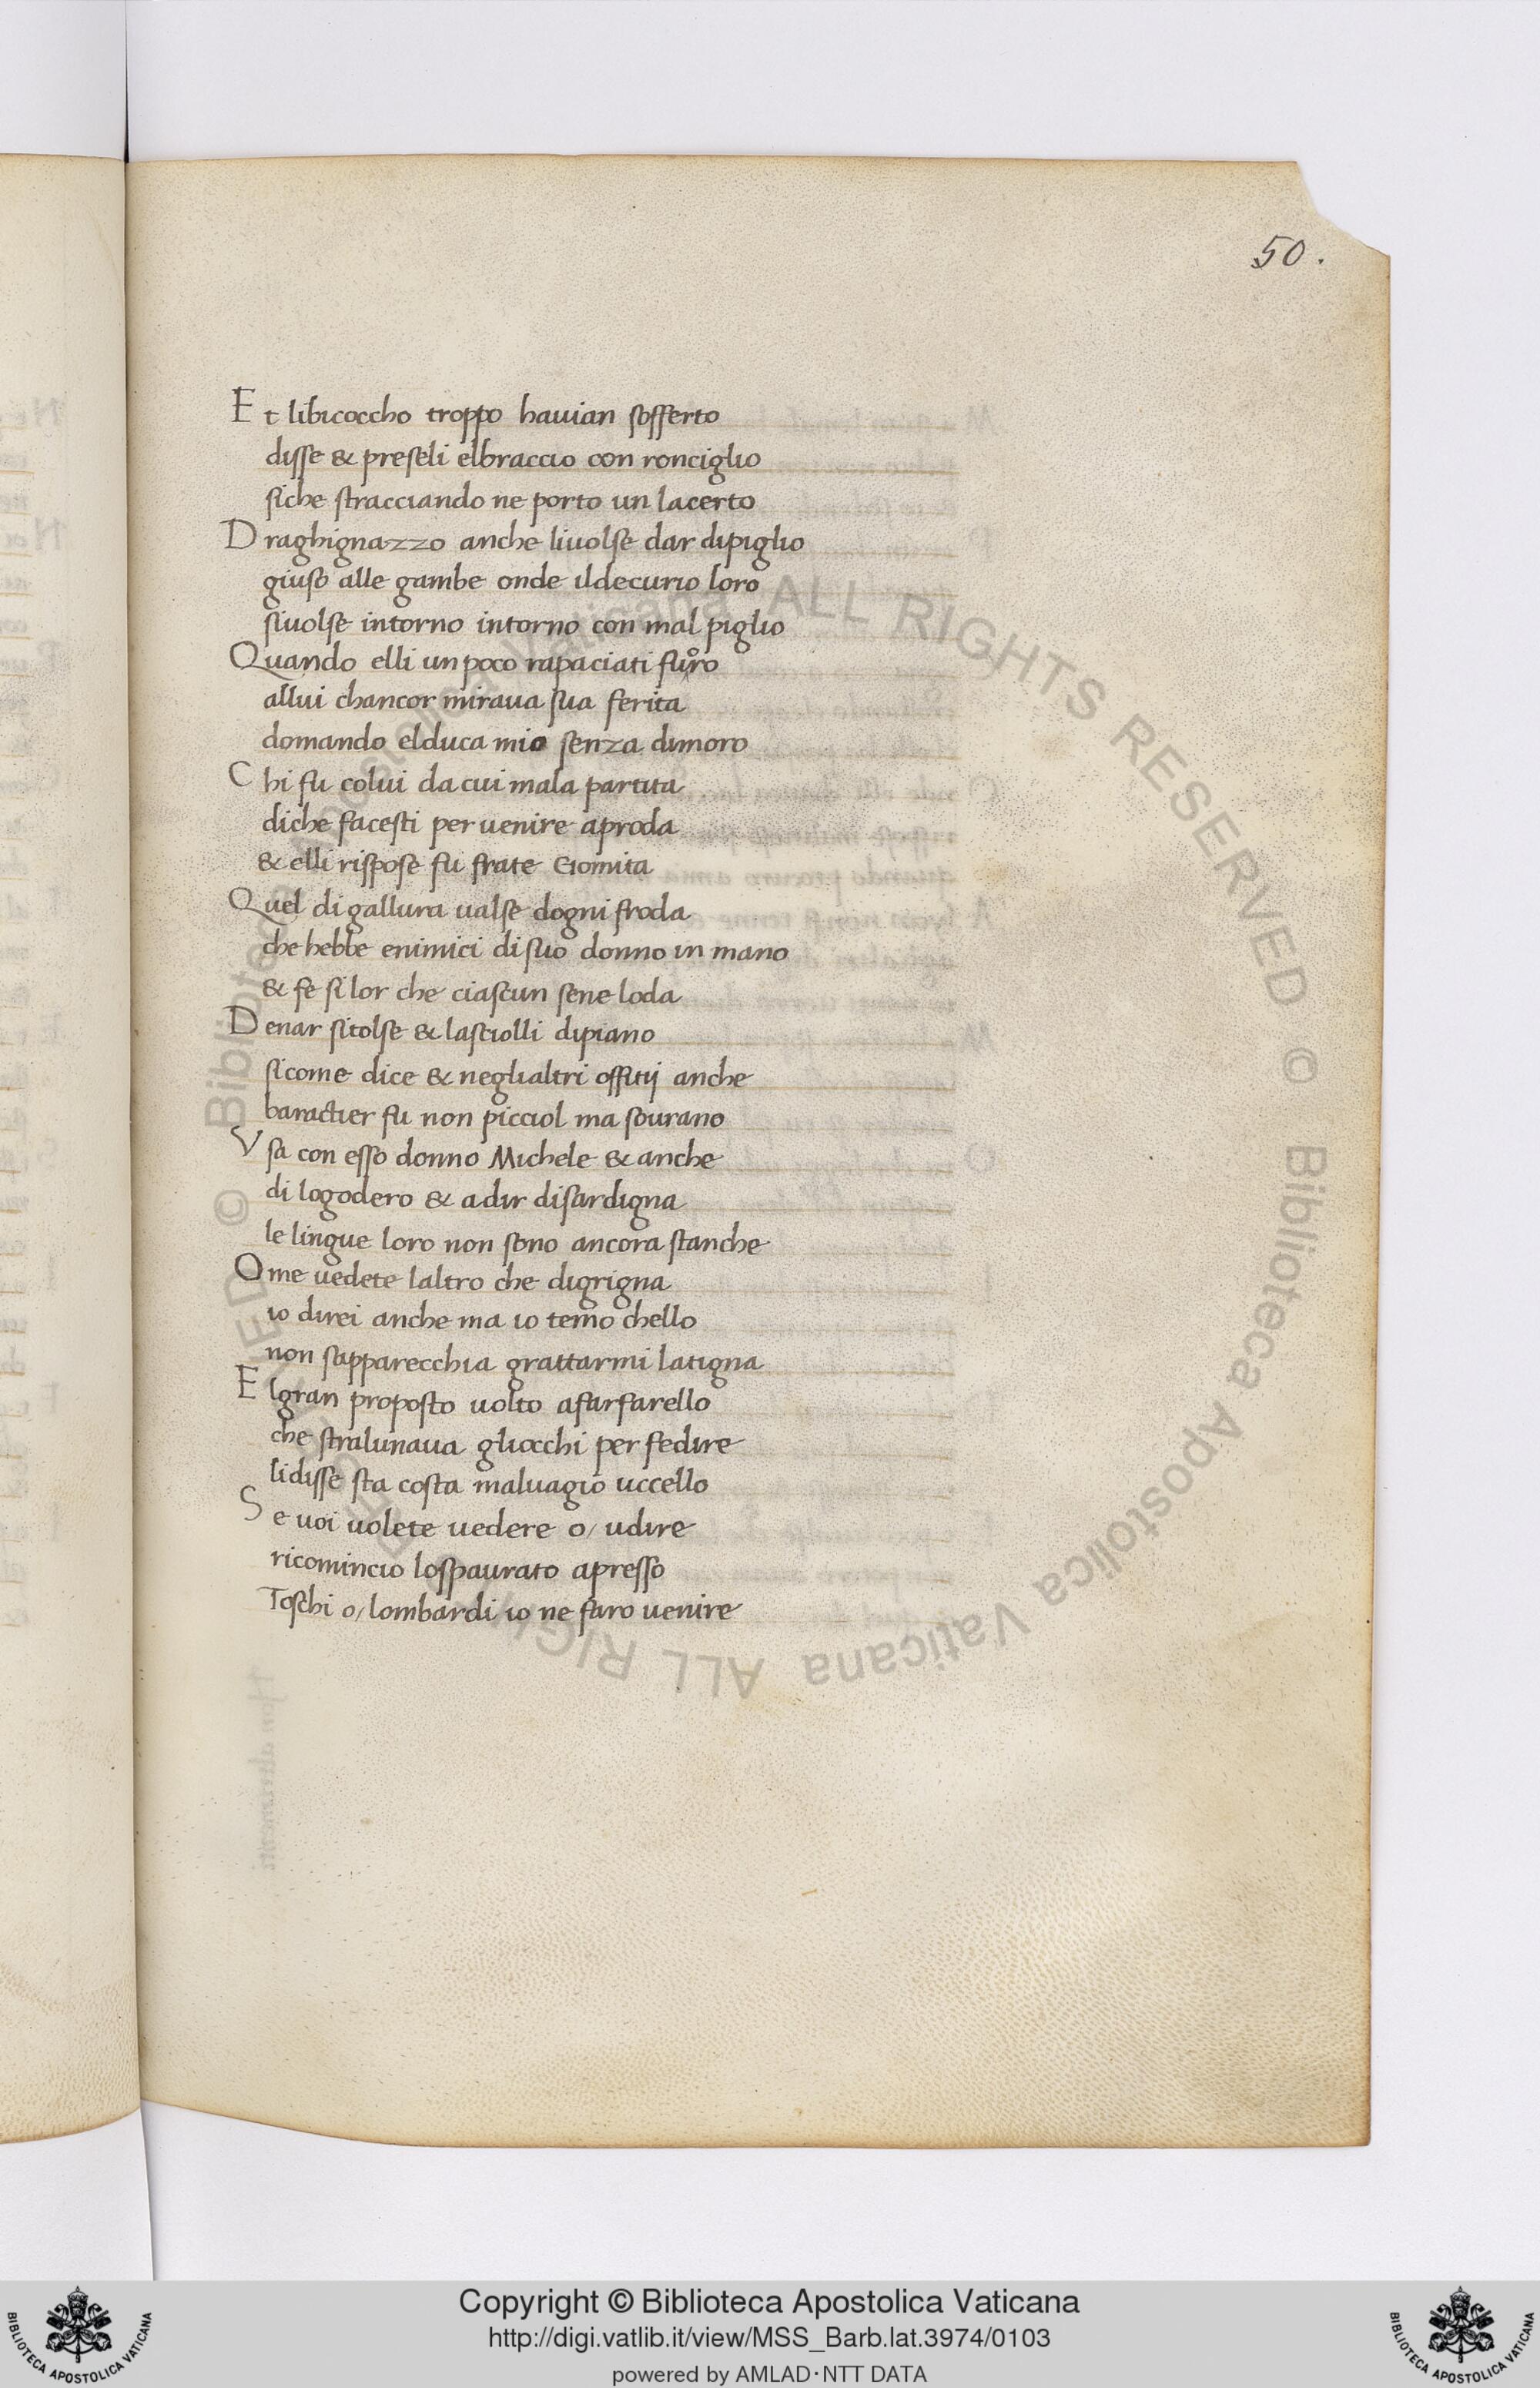 50.
Et libicoccho troppo hauian sofferto
disse & preseli elbraccio con ronciglio
siche stracciando ne porto un lacerto
Draghignazzo anche liuolse dar dipiglio
giuso alle gambe onde ildecurio loro
siuolse intorno intorno con mal piglio
Quando elli un poco rapaciati furo
allui chancor miraua sua ferita
domando elduca mio senza dimoro
Chi fu colui da cui mala partita
diche facesti per uenire aproda
& elli rispose fu frate Gomita
Quel di gallura ualse dogni froda
che hebbe enimici di suo donno in mano
& fe si lor che ciascun sene loda
Denar sitolse & lasciolli dipiano
sicome dice & neglialtri offitij anche
baractier fu non picciol ma sourano
Vsa con esso donno Michele & anche
di logodero & a dir disardigna
le lingue loro non sono ancora stanche
Ome uedete laltro che digrigna
io direi anche ma io temo chello
non sapparecchia grattarmi latigna
Elgran proposto uolto afarfarello
che stralunaua gliocchi per fedire
lidisse sta costa maluagio uccello
Se uoi uolete uedere o/ udire
ricomincio lospaurato apresso
Toschi o/ lombardi io ne faro uenire
© Biblioteca Apostolica Vaticana ALL RIGHTS RESERVED © Biblioteca Apostolica Vaticana ALL RIGHTS RESERVED
BIBLIOTECA APOSTOLICA VATICANA
Copyright © Biblioteca Apostolica Vaticana
http://digi.vatlib.it/view/MSS_Barb.lat.3974/0103
powered by AMLAD·NTT DATA
BIBLIOTECA APOSTOLICA VATICANA